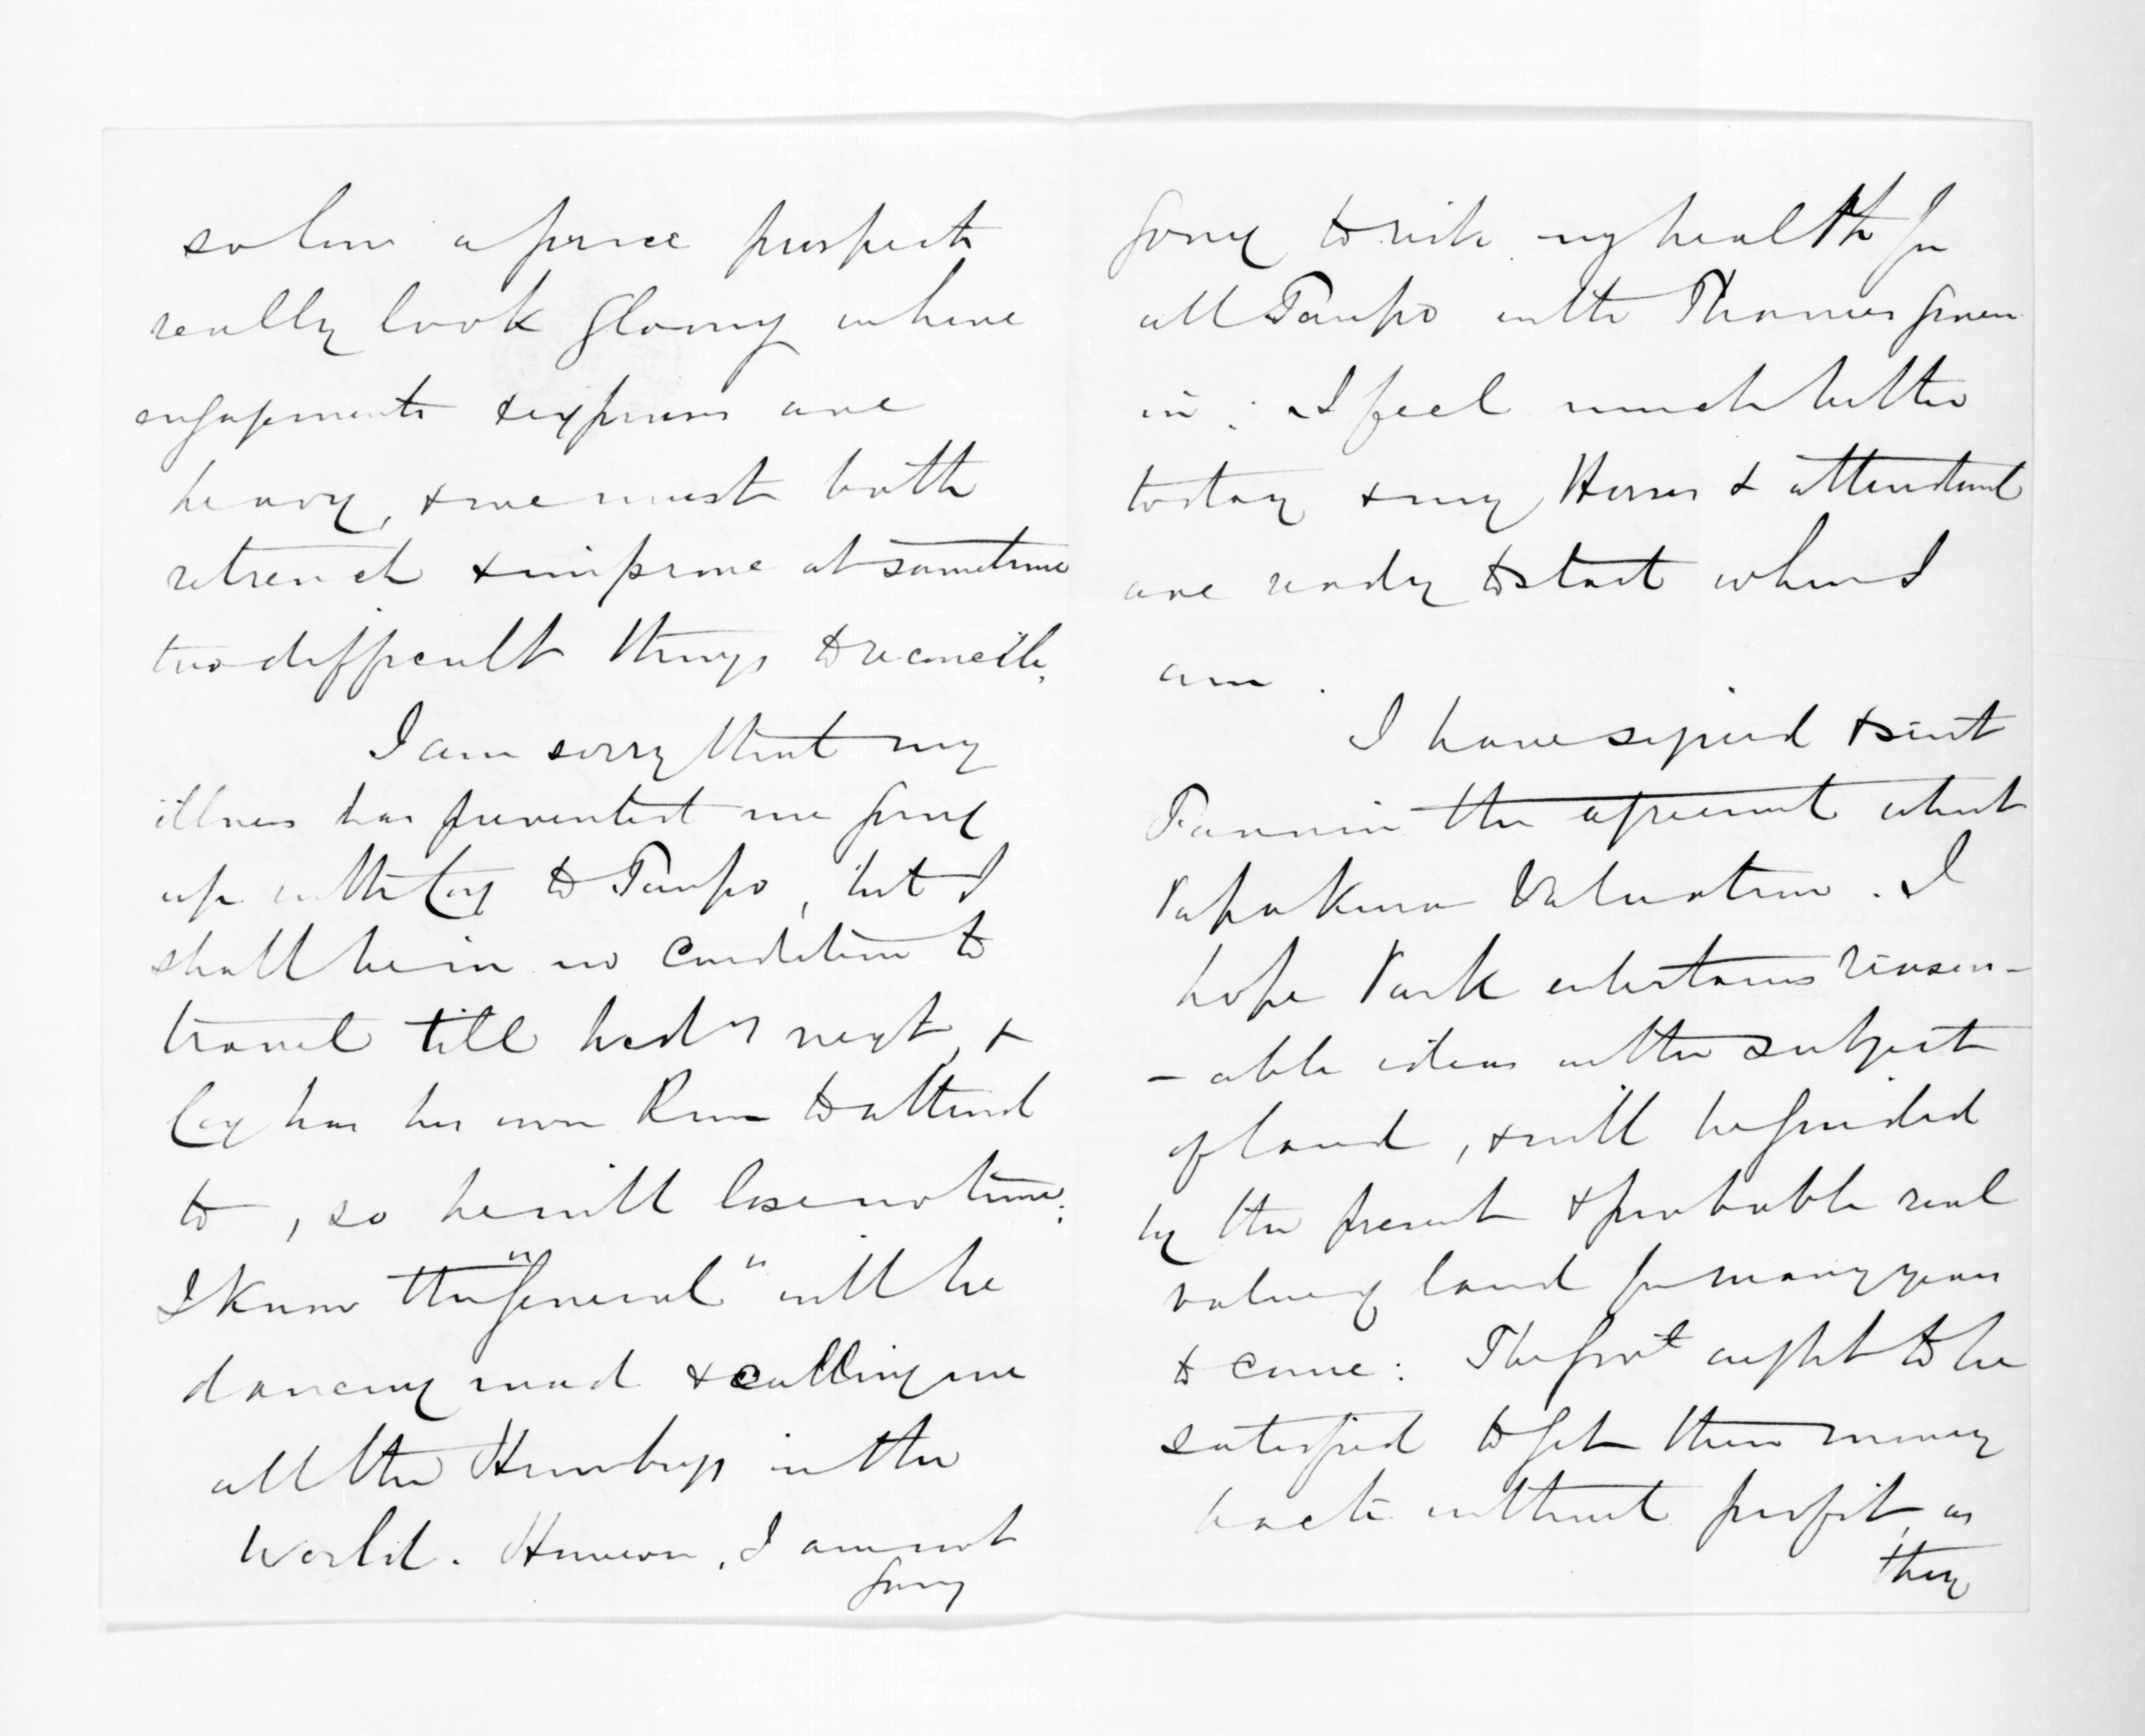 so low a price prospects
really look gloomy where
engagements & expenses are
heavy, & we must both
retrench & improve at sametime
two difficult things to reconcile.
I am sorry that my
illness has prevented me going
up with Coy to Taupo, but I
shall be in no condition to
travel till Wed'y next, &
Coy has his own Run to attend
to, so he will lose no time;
I know the "General" will be
dancing mad & calling me
all the Humbugs in the
World. However, I am not
going
going to risk my health for
all Taupo with Thames thrown
in: I feel much better
today & my Horses & attendant
are ready to start when I
am.
I have signed & sent
Fannin the agreement about
Papakura Valuation. I
hope Park entertains reason-
-able ideas on the subject
of land, & will be guided
by the present & probable real
value of land for many years
to come: The Gov't ought to be
satisfied to get their money
back without profit, as
they